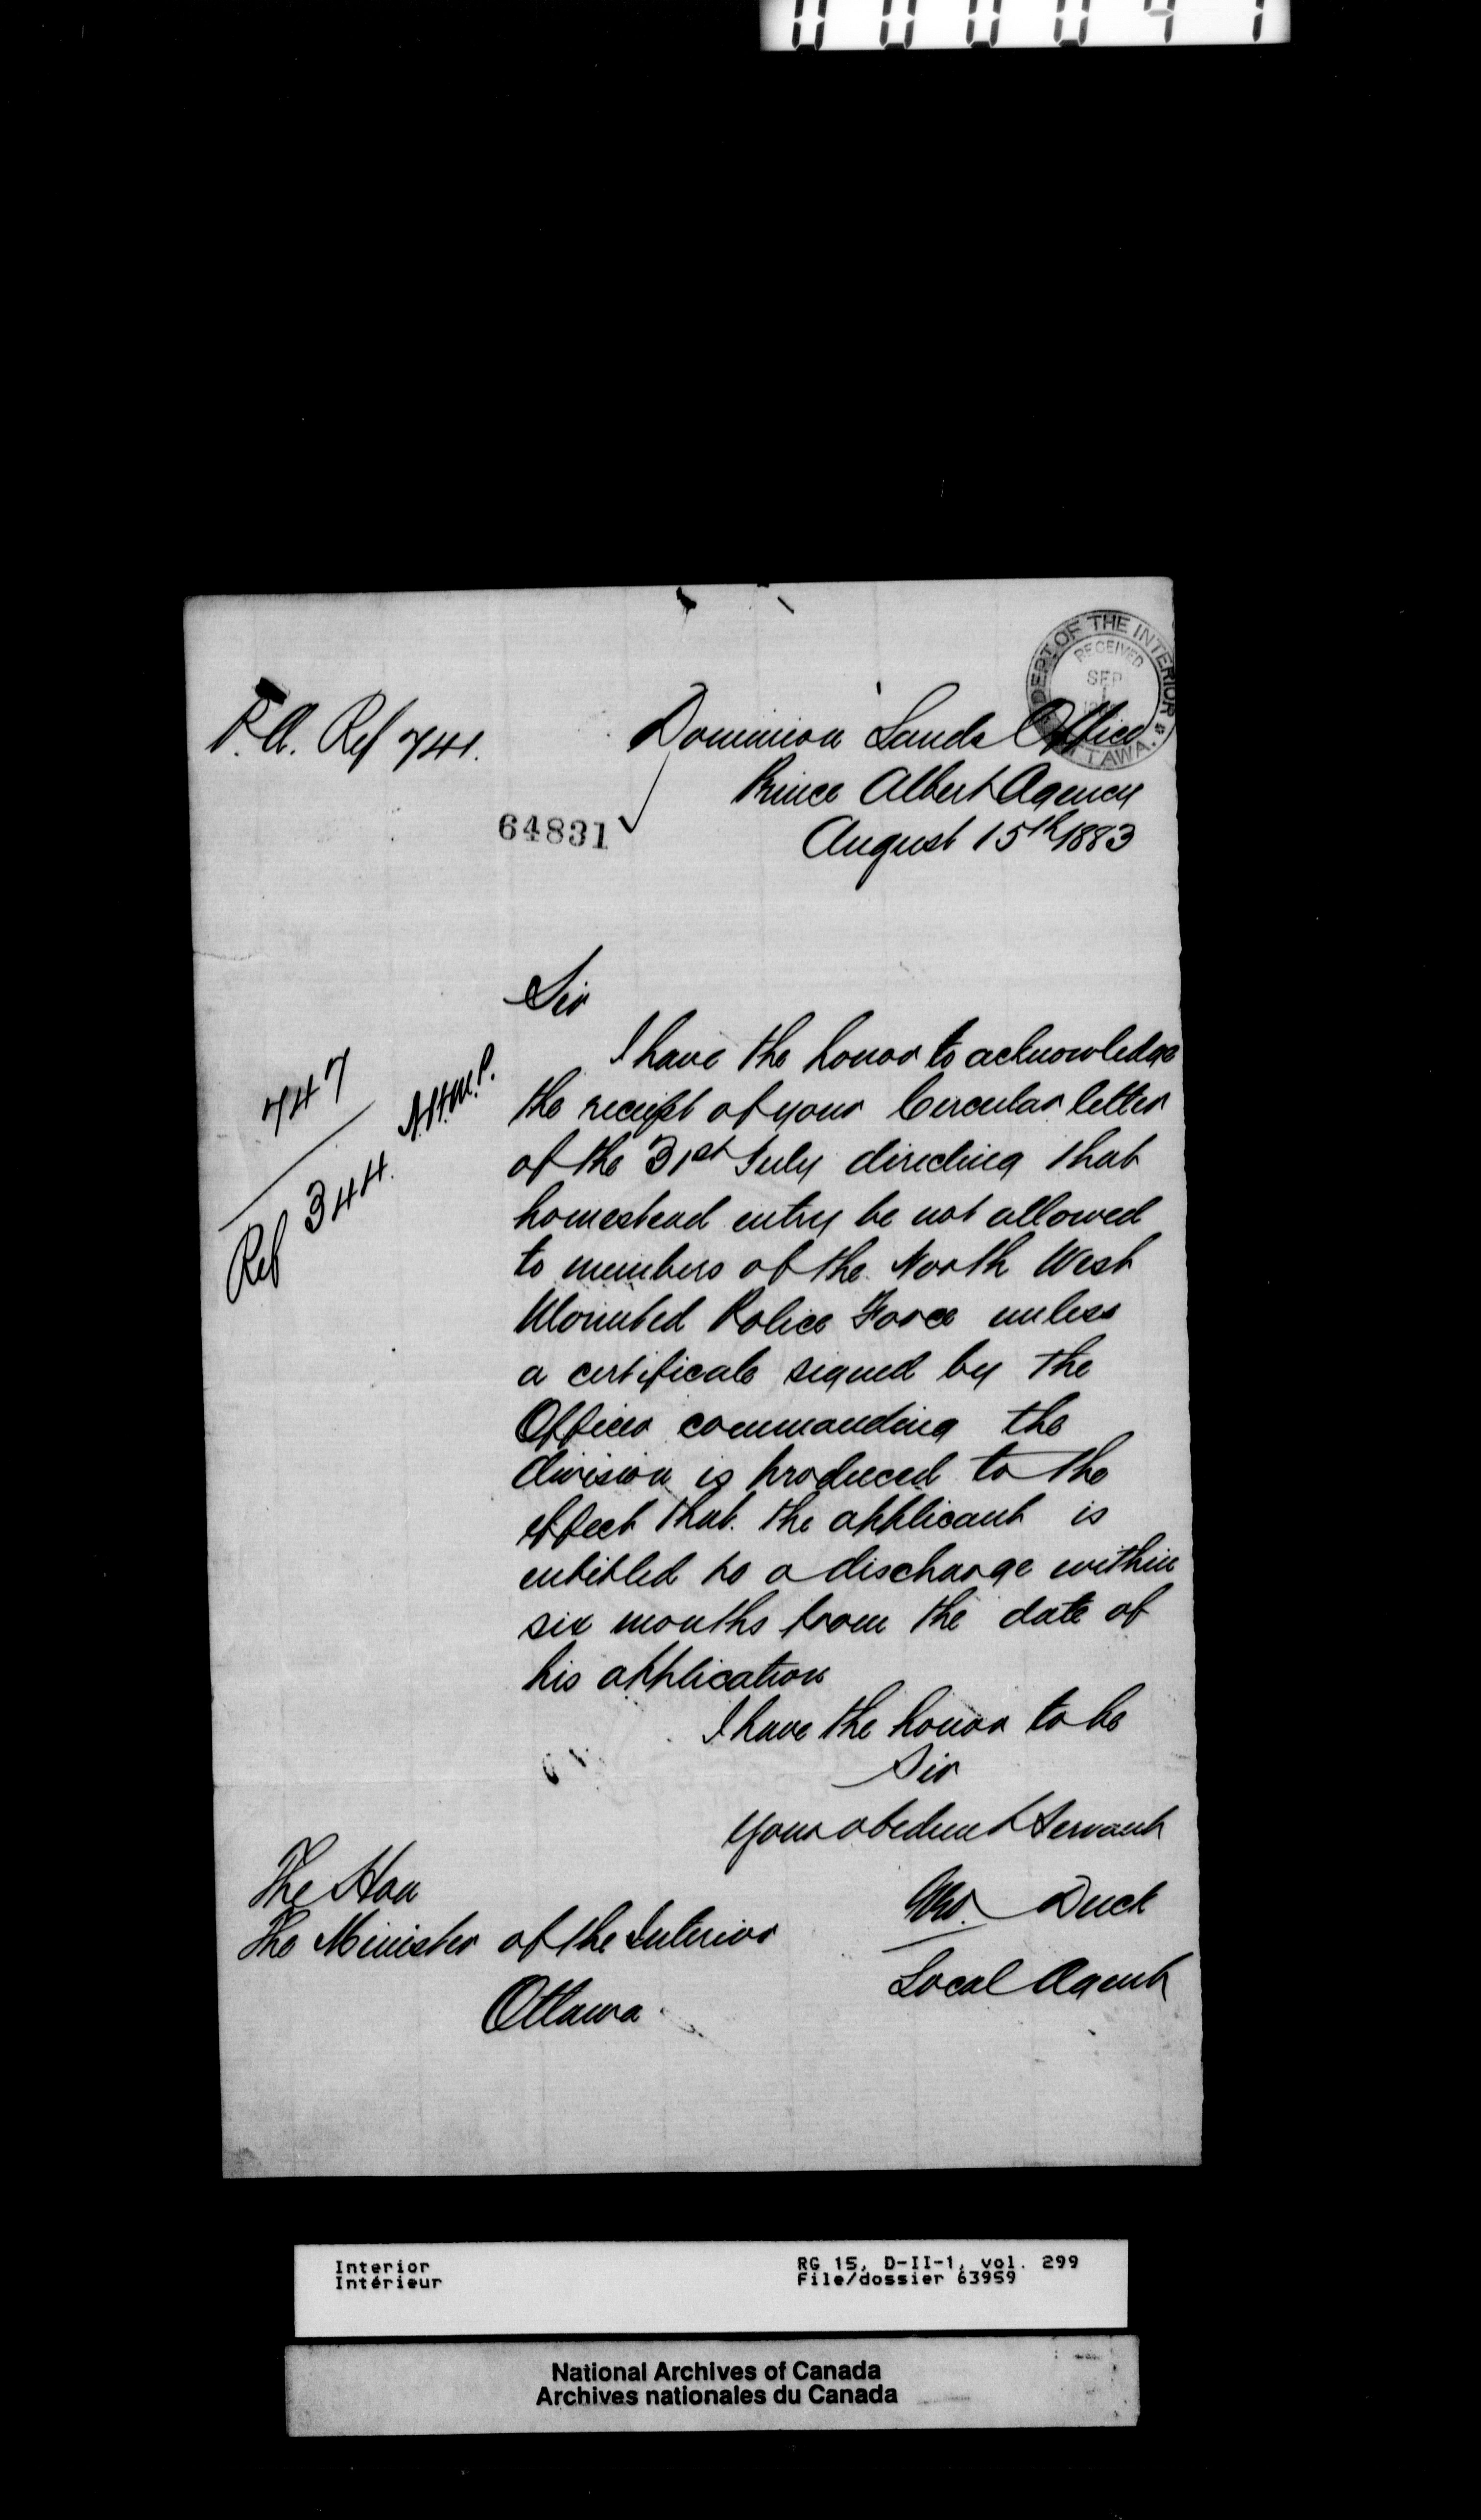 P.A. Ref 741.
DEPT OF THE INTERIOR
RECEIVED
SEP
1
OTTAWA
Dominion Lands Office
Prince Albert Agency
64831
August 15th 1883
Sir
I have the honor to acknowledge
the receipt of your Circular letter
of the 31st July directing that
homestead entry be not allowed
to members of the North West
Mounted Police Force unless
a certificate signed by the
Officer commanding the
division is produced to the
effect that the applicant is
entitled to a discharge within
six months from the date of
his application
747
Ref 344.
I have the honor to be
Sir
Your obedient Servant
Geo. Duck
Local Agent
The Hon
The Minister of the Interior
Ottawa
Interior
Intérieur
RG 15, D-II-1, vol. 299
File/dossier 63959
National Archives of Canada
Archives nationales du Canada